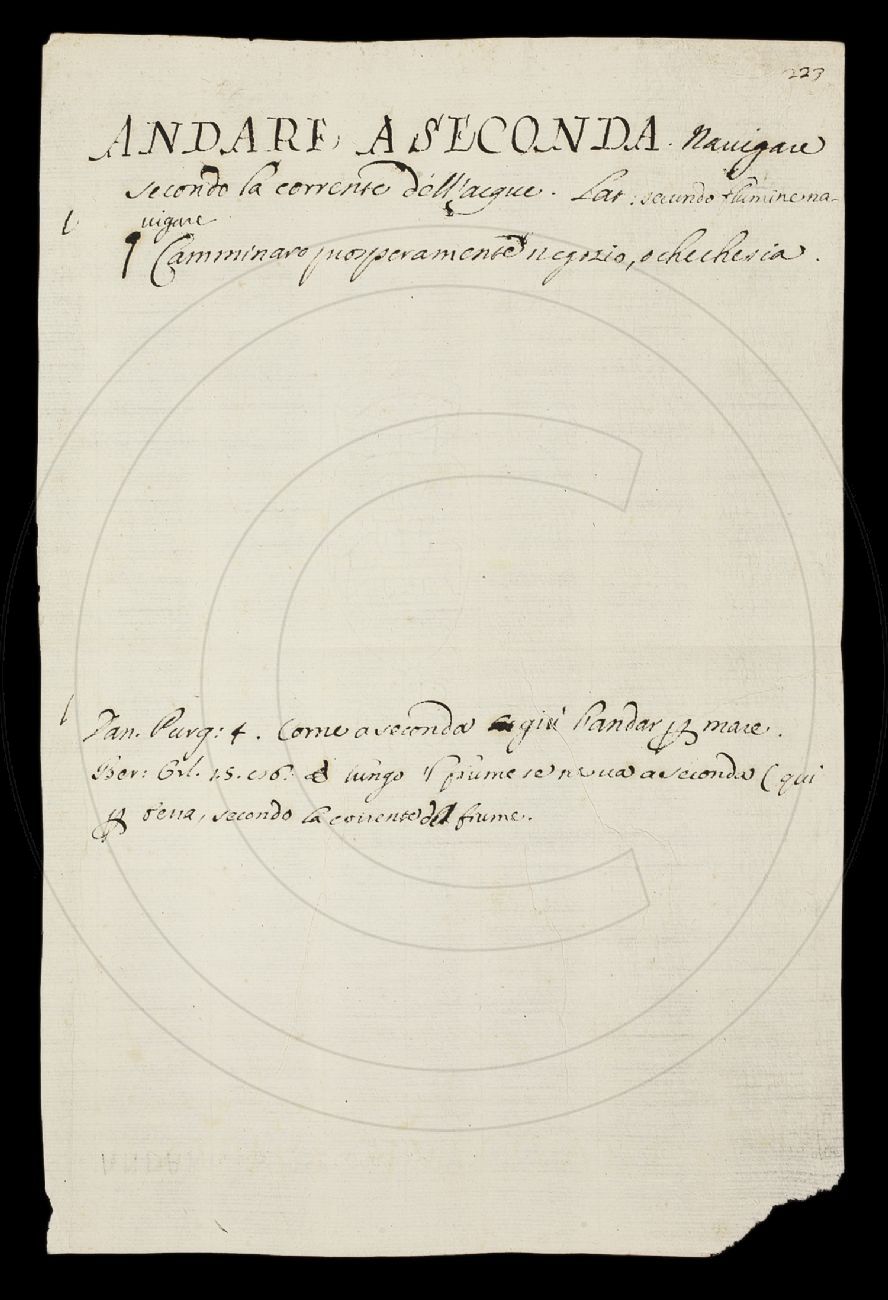 223
ANDARE A SECONDA. Nauigare
secondo la corrente dell'acque. Lat: secundo flumine na-
uigare
¶ Camminare prosperamente negozio, o chechesia.
Dan. Purg: 4. Come a seconda giù l'andar mare.
Ber: Orl. 15. e 16: lungo 'l fiume se ne ua a seconda (qui
terra, secondo la corrente del fiume.